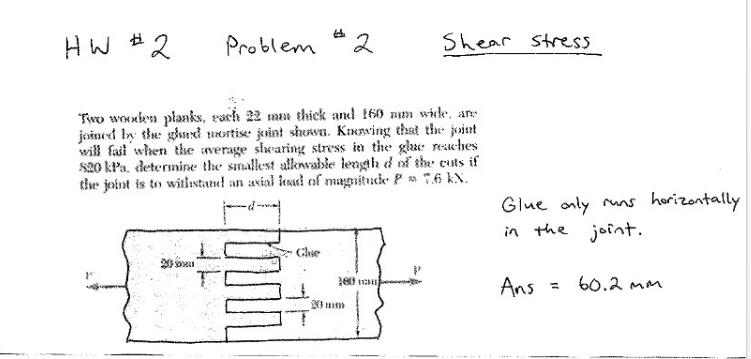 HW #2 Problem #2 Shear stress
Two wooden planks, each 22 mm thick and 160 mm wide, are
joined by the glued mortise joint shown. Knowing that the joint
will fail when the average shearing stress in the glue reaches
820 kPa, determine the smallest allowable length d of the cuts if
the joint is to withstand an axial load of magnitude P = 7.6 kN.
d
Glue only runs horizontally
in the joint.
Glue
20 mm
P
P
160 mm
Ans = 60.2 mm
20 mm